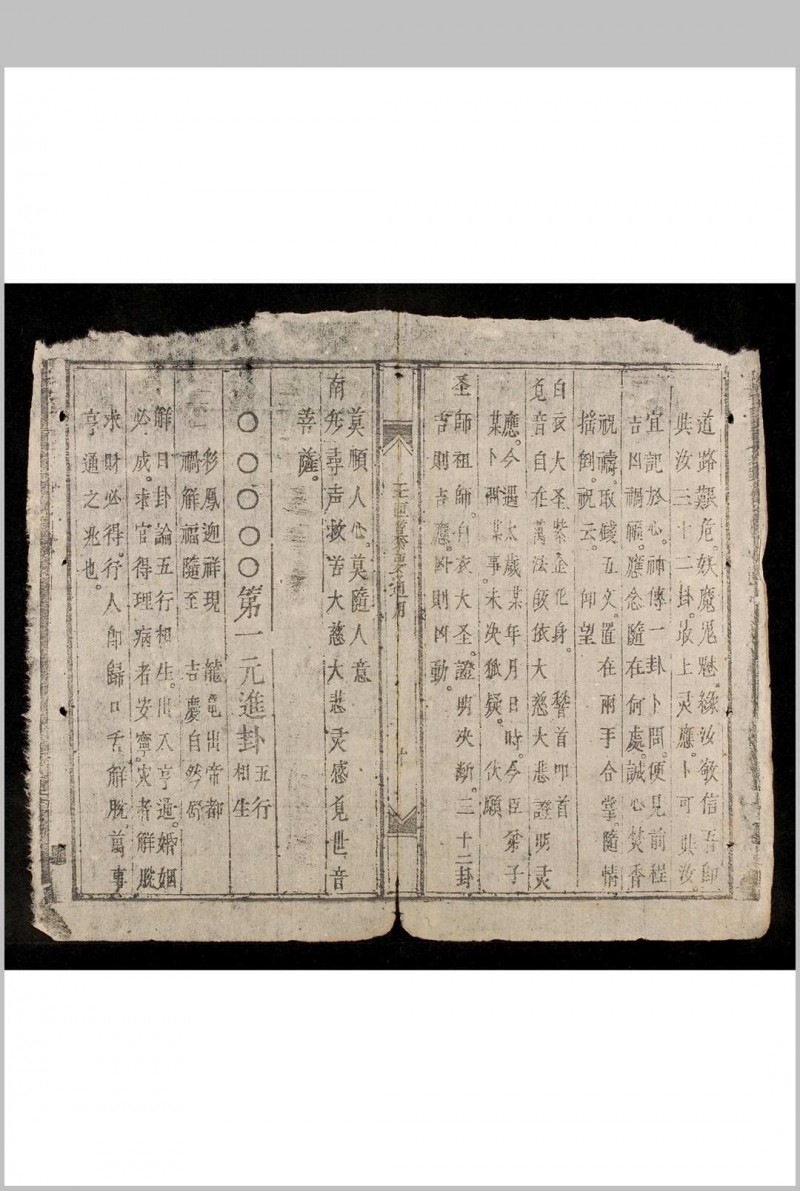 道路艱危。妖魔鬼魅。緣汝敬信吾卽
與汝三十二卦。最上灵應。卜可與汝
宜記於心。神傳一卦卜問。便見前程
吉凶禍福。應念隨在何處。誠心焚香
祝禱。取錢五文。置在兩手合掌。隨情
揺倒。祝云。 仰望
白衣大圣紫金化身。 稽首叩首
覓音自在萬法皈依大慈大悲證明灵
應。今遇太歲某年月日時。今臣弟子
某卜問某事。未决狐疑。 伏願
圣師祖師。白衣大圣。證明决断。三十二卦
吉則吉應。凶則凶動。
玉匣
要通用
莫順人心。莫隨人意
南无尋声救苦大慈大悲灵感覓世音
菩薩。
○○○○○第一元進卦 五行相生
彩鳳迎祥現 龍亀出帝都
禍解福隨至 吉慶自然舒
解曰卦論五行相生。出入亨通。婚姻
必成。求官得理病者安寧。灾者解脫
求財必得。行人卽歸口舌解脫。萬事
亨通之兆也。